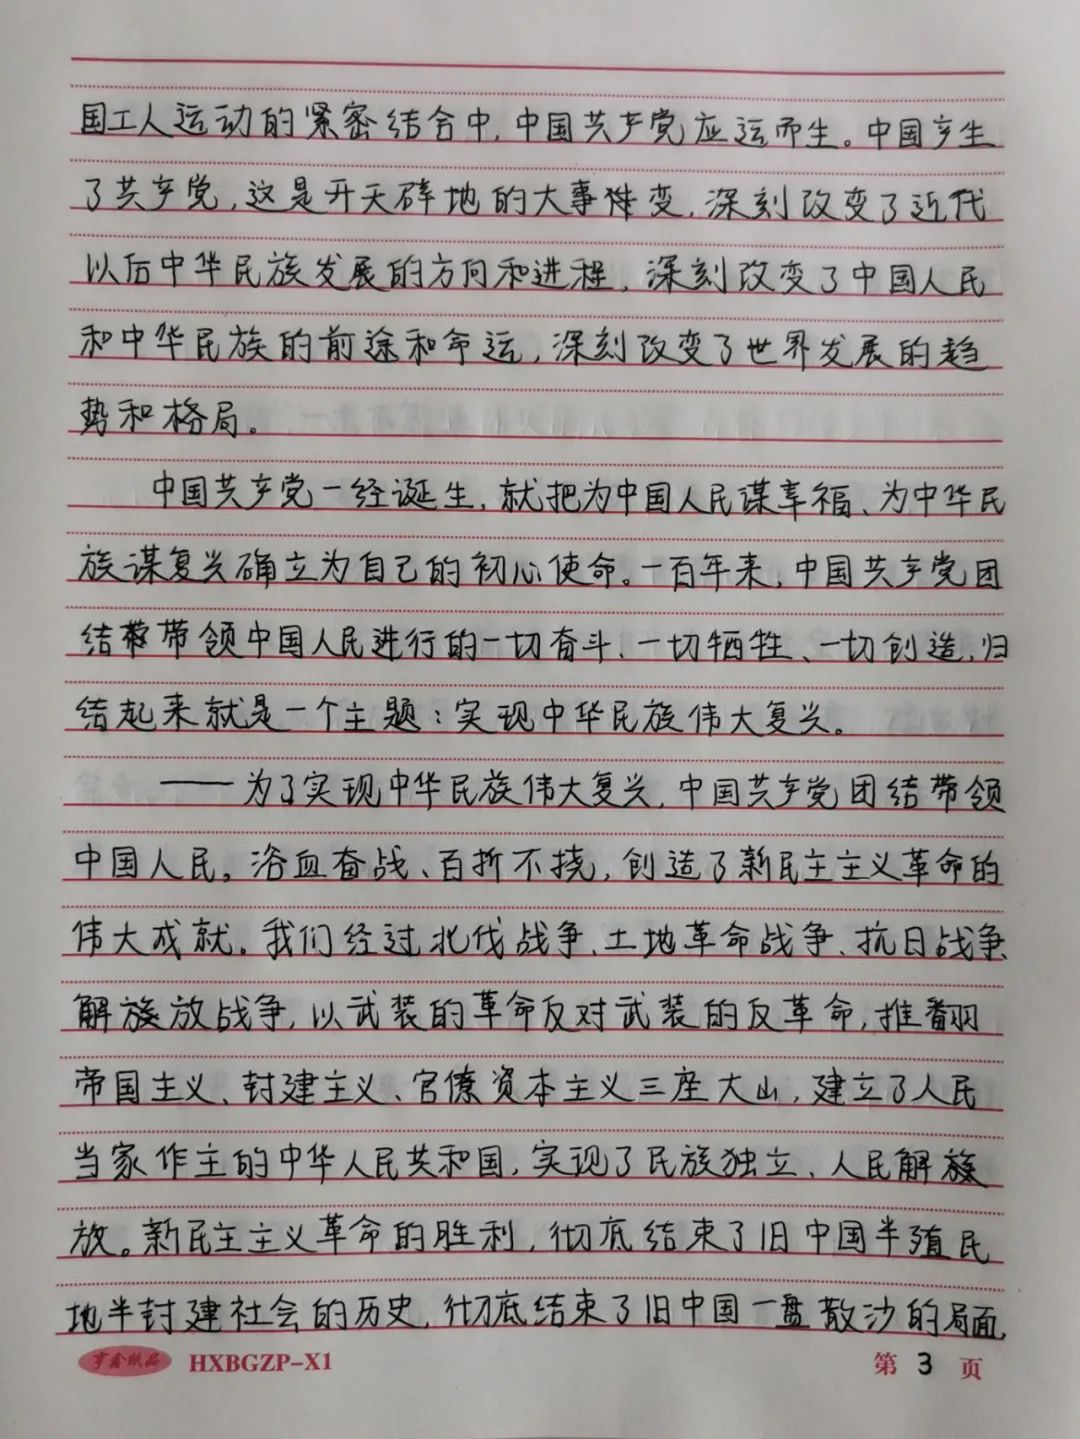 国工人运动的紧密结合中,中国共产党应运而生。中国产生
了共产党,这是开天辟地的大事件变,深刻改变了近代
以后中华民族发展的方向和进程,深刻改变了中国人民
和中华民族的前途和命运,深刻改变了世界发展的趋
势和格局。
中国共产党一经诞生,就把为中国人民谋幸福、为中华民
族谋复兴确立为自己的初心使命。一百年来,中国共产党团
结带领中国人民进行的一切奋斗、一切牺牲、一切创造,归
结起来就是一个主题:实现中华民族伟大复兴。
——为了实现中华民族伟大复兴,中国共产党团结带领
中国人民。浴血奋战、百折不挠,创造了新民主主义革命的
伟大成就。我们经过北伐战争、土地革命战争、抗日战争、
解放战争,以武装的革命反对武装的反革命,推翻
帝国主义、封建主义、官僚资本主义三座大山,建立了人民
当家作主的中华人民共和国,实现了民族独立、人民解
放。新民主主义革命的胜利,彻底结束了旧中国半殖民
地半封建社会的历史,彻底结束了旧中国一盘散沙的局面,
亨鑫纸品 HXBGZP-X1 第 3 页